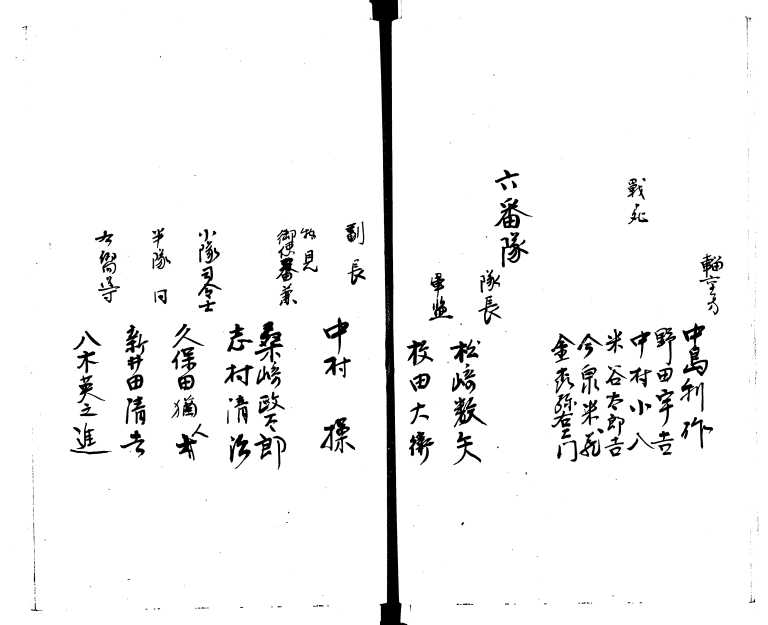 輜重方
中島利作
野田宇吉
戦死
中村小八
米谷太郎吉
今泉米蔵
金森弥右エ門
六番隊
隊長
松﨑数矢
軍監
板田大衛
副長
中村操
物見
桑﨑政太郎
御使番兼
志村清治
小隊司令士
久保田猶人
半隊同
新井田清吉
右嚮導
八木英之進